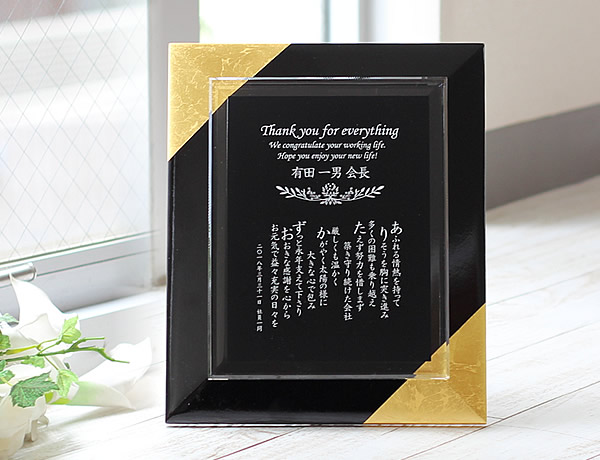 Thank you for everything
We congratulate your working life.
Hope you enjoy your new life!
有田 一男 会長
あふれる情熱を持って
りそうを胸に突き進み
多くの困難も乗り越え
たえず努力を惜しまず
築き守り続けた会社
厳しくも温かく
かがやく太陽の様に
大きな心で包み
ずっと永年支えて下さり
おおきな感謝を心から
お元気で益々充実の日々を
二〇一八年三月三十一日 社員一同